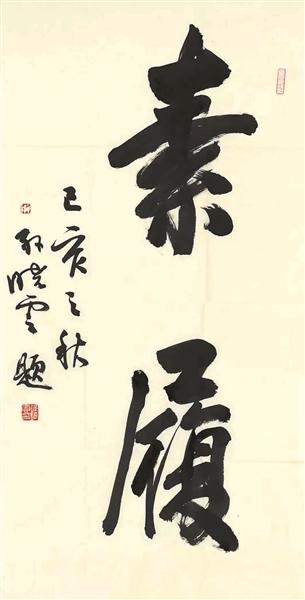 素履
己亥之秋
孙晓云题